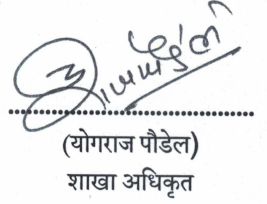 (योगराज पौडेल)
शाखा अधिकृत